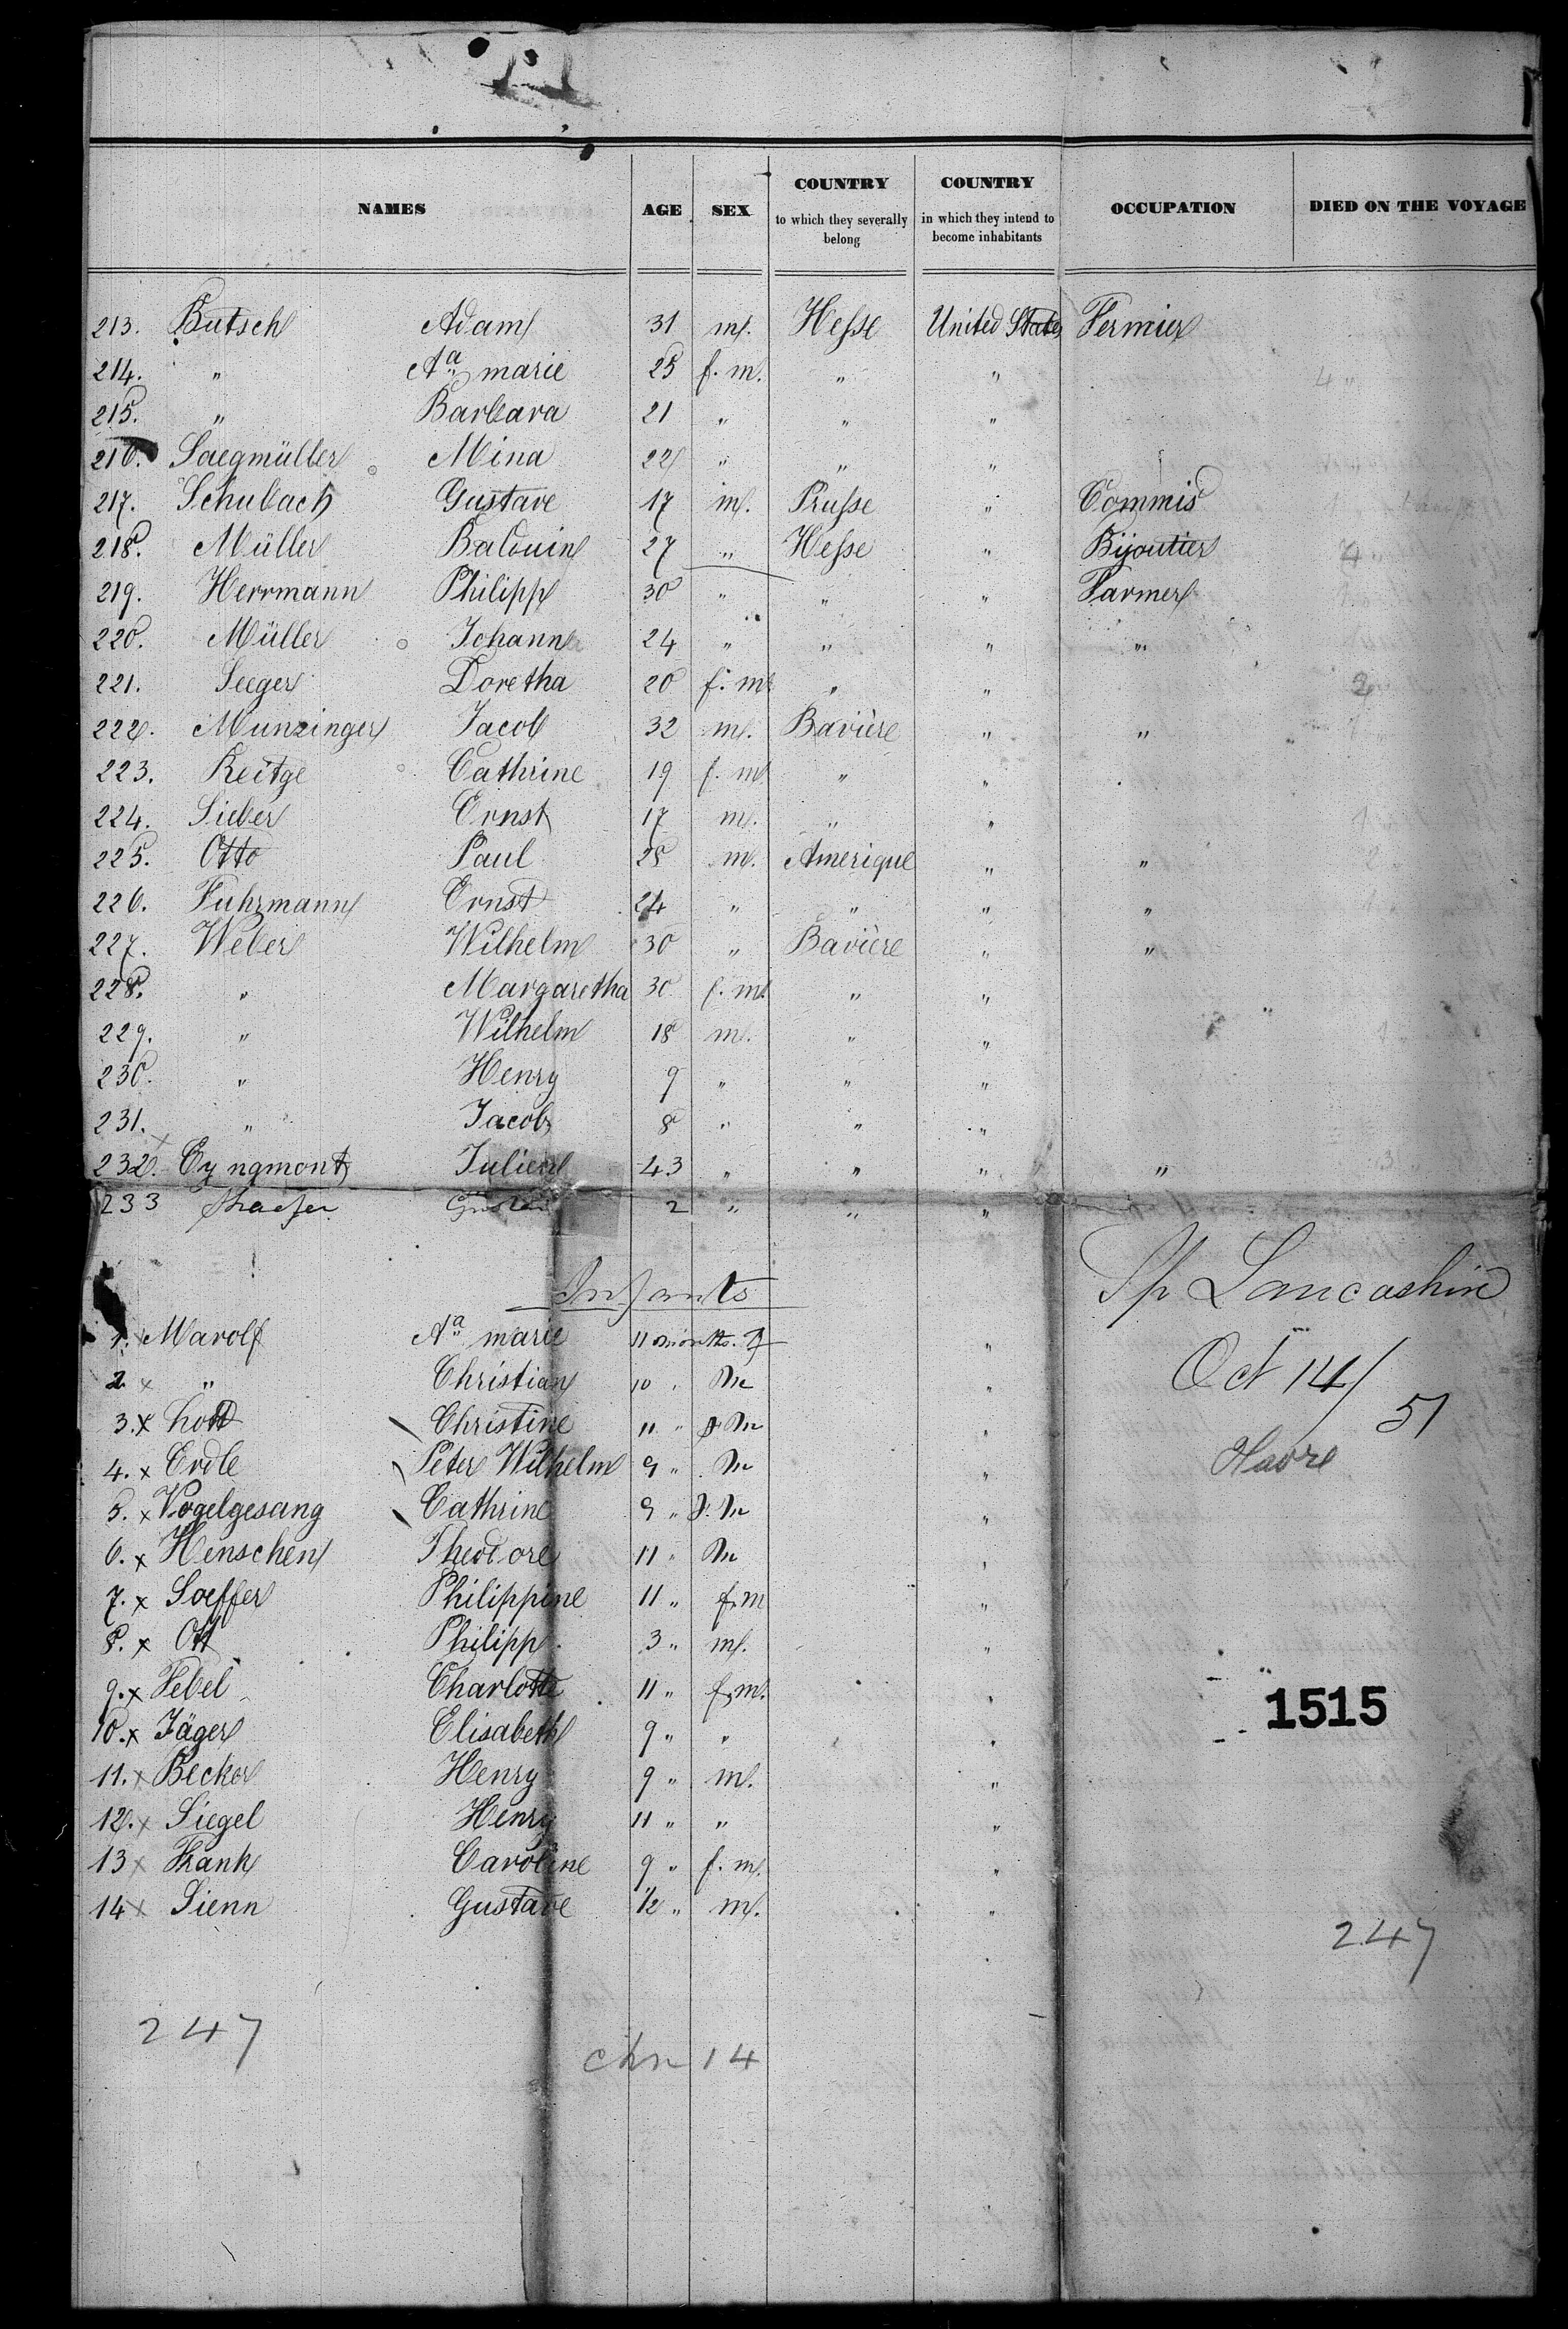 NAMES AGE SEX COUNTRY to which they severally belong COUNTRY in which they intend to become inhabitants OCCUPATION DIED ON THE VOYAGE
213. Butsch Adam 31 m. Hesse United States Fermier
214. " Aa marie 25 f. m. " "
215. " Barbara 21 " " "
216. Saegmüller Mina 22 " " "
217. Schubach Gustave 17 m. Prusse " Commis
218. Müller Balduin 27 " Hesse " Bijoutier
219. Herrmann Philipp 30 " " " Farmer
220. Müller Johann 24 " " " "
221. Seeger Doretha 20 f. m. " "
222. Munzinger Jacob 32 m. Bavière " "
223. Reitge Cathrine 19 f. m. " "
224. Sieber Ernst 17 m. " "
225. Otto Paul 28 m. Amerique " "
226. Fuhrmann Ernst 24 " " " "
227. Weber Wilhelm 30 " Bavière " "
228. " Margaretha 30 f. m. " "
229. " Wilhelm 18 m. " "
230. " Henry 9 " " "
231. " Jacob 8 " " "
232. Eyngmont Julien 43 " " " "
233 2 " " "
Infants
Sp Lancashire
1. Marolf Aa marie 11 months. f "
2. x " Christian 10 " m "
Oct 14/51
3. x Christine 11 " f m "
4. x Erdle Peter Wilhelm 9 " m "
Havre
5. x Vogelgesang Cathrine 9 " f. m "
6. x Henschen Theodore 11 " m "
7. x Soeffer Philippine 11 " f. m "
8. x Ott Philipp 3 " m. "
9. x Febel Charlotte 11 " f. m. "
1515
10. x Jäger Elisabeth 9 " " "
11. x Becker Henry 9 " m. "
12. x Siegel Henry 11 " " "
13 x Frank Caroline 9 " f. m. "
14 x Sienn Gustave 1/2 " m. "
247
247
chn 14